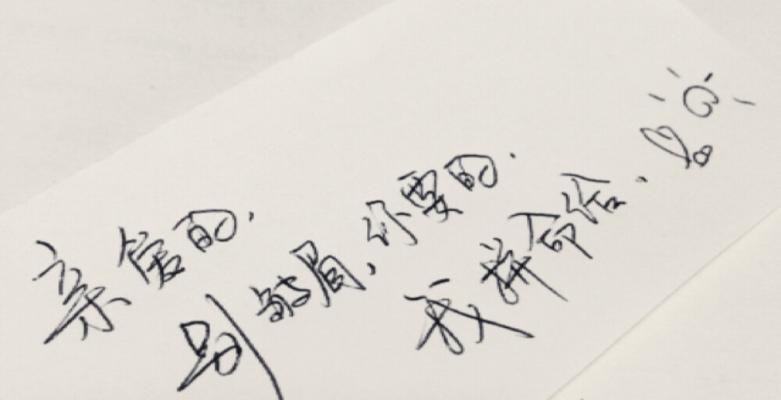 亲爱的.
别皱眉,你要的.
我拼命给.